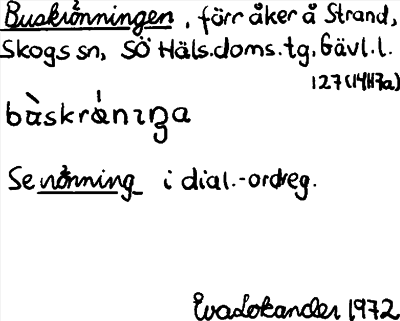 Buskrönningen, förr åker å Strand,
Skogs sn, SÖ Häls.doms.tg, Gävl.l.
127 (14H7a)
bùskrǿnıŋa
Se rönning i dial.-ordreg.
Eva Lokander 1972